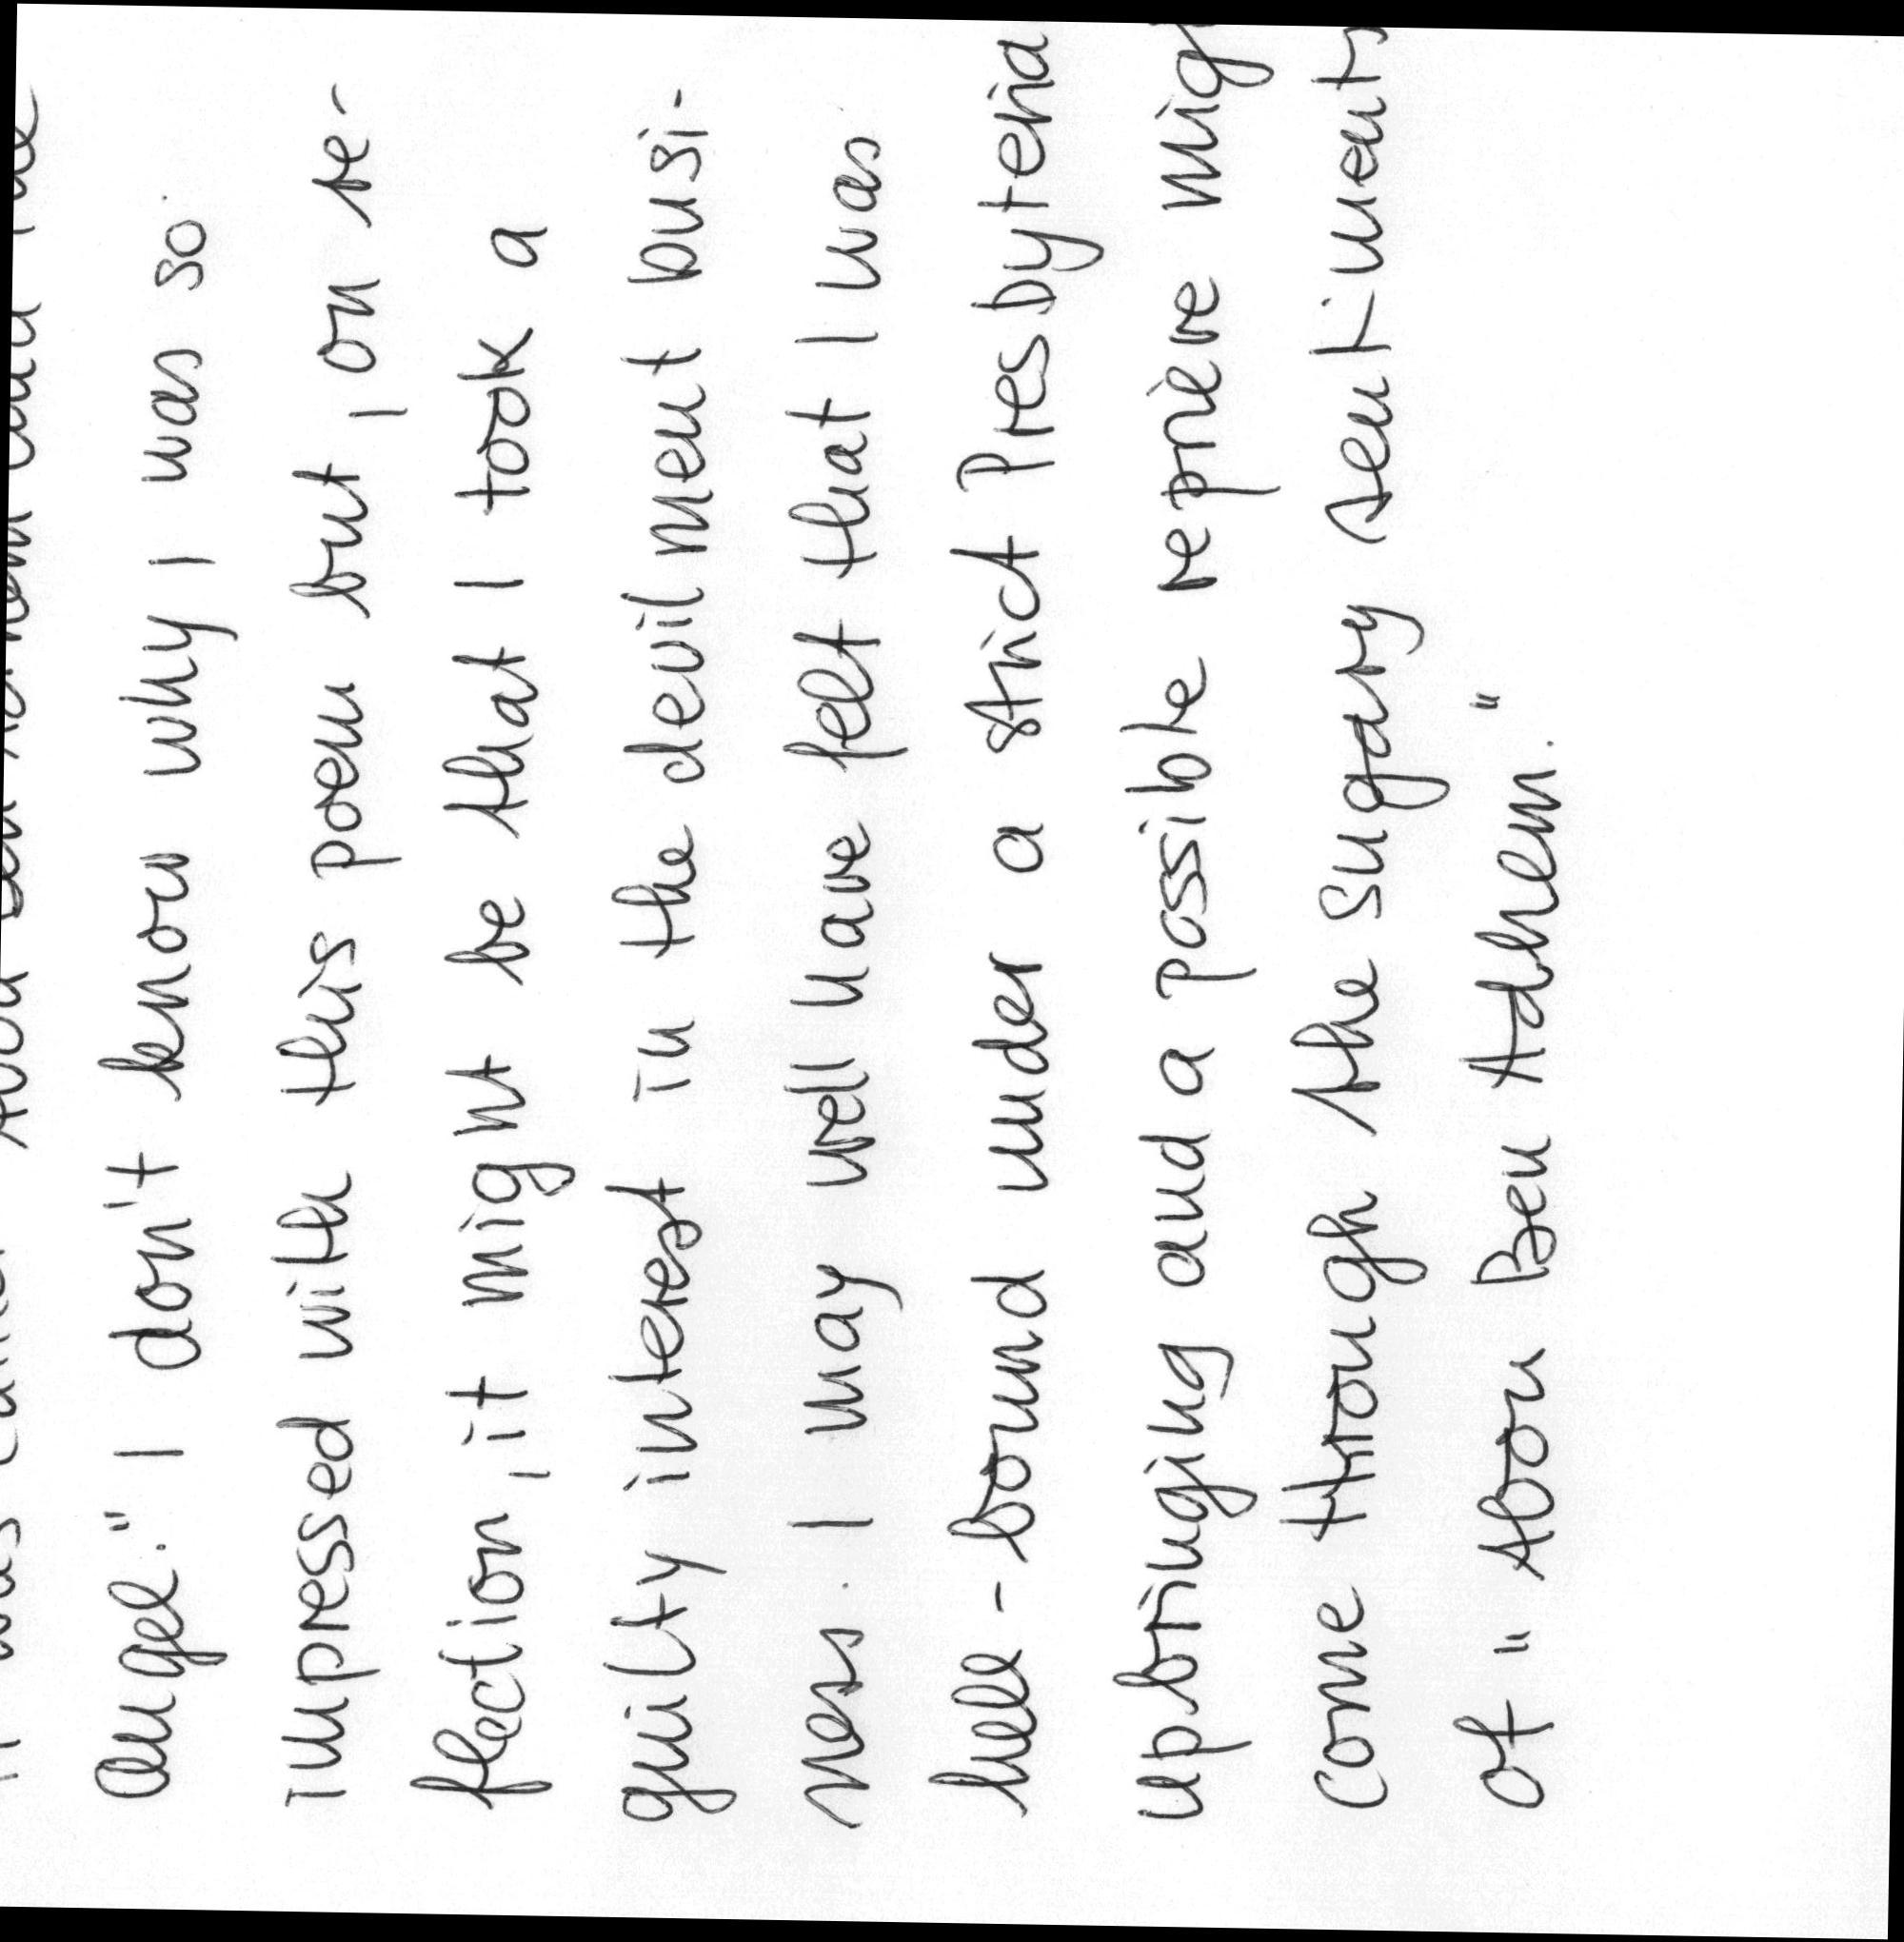 angel." I don't know why I was so
impressed with this poem but, on re-
flection, it might be that I took a
guilty interest in the devilment busi-
ness. I may well have felt that I was
hell-bound under a strict Presbyteria
upbringing and a possible reprieve migh
come through the sugary sentiments
of "Abou Ben Adhem."